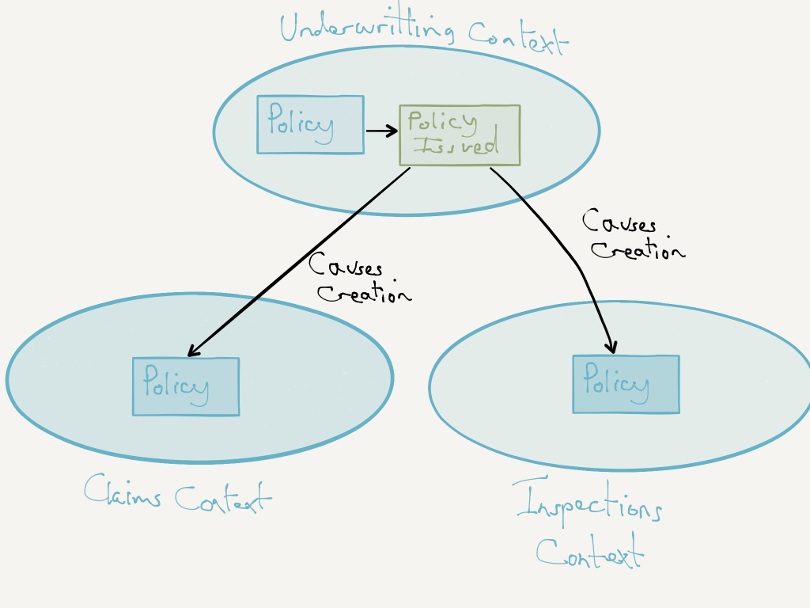 Underwritting Context
Policy
Policy
Issued
Causes
Creation
Causes
Creation
Policy
Policy
Claims Context
Inspections
Context